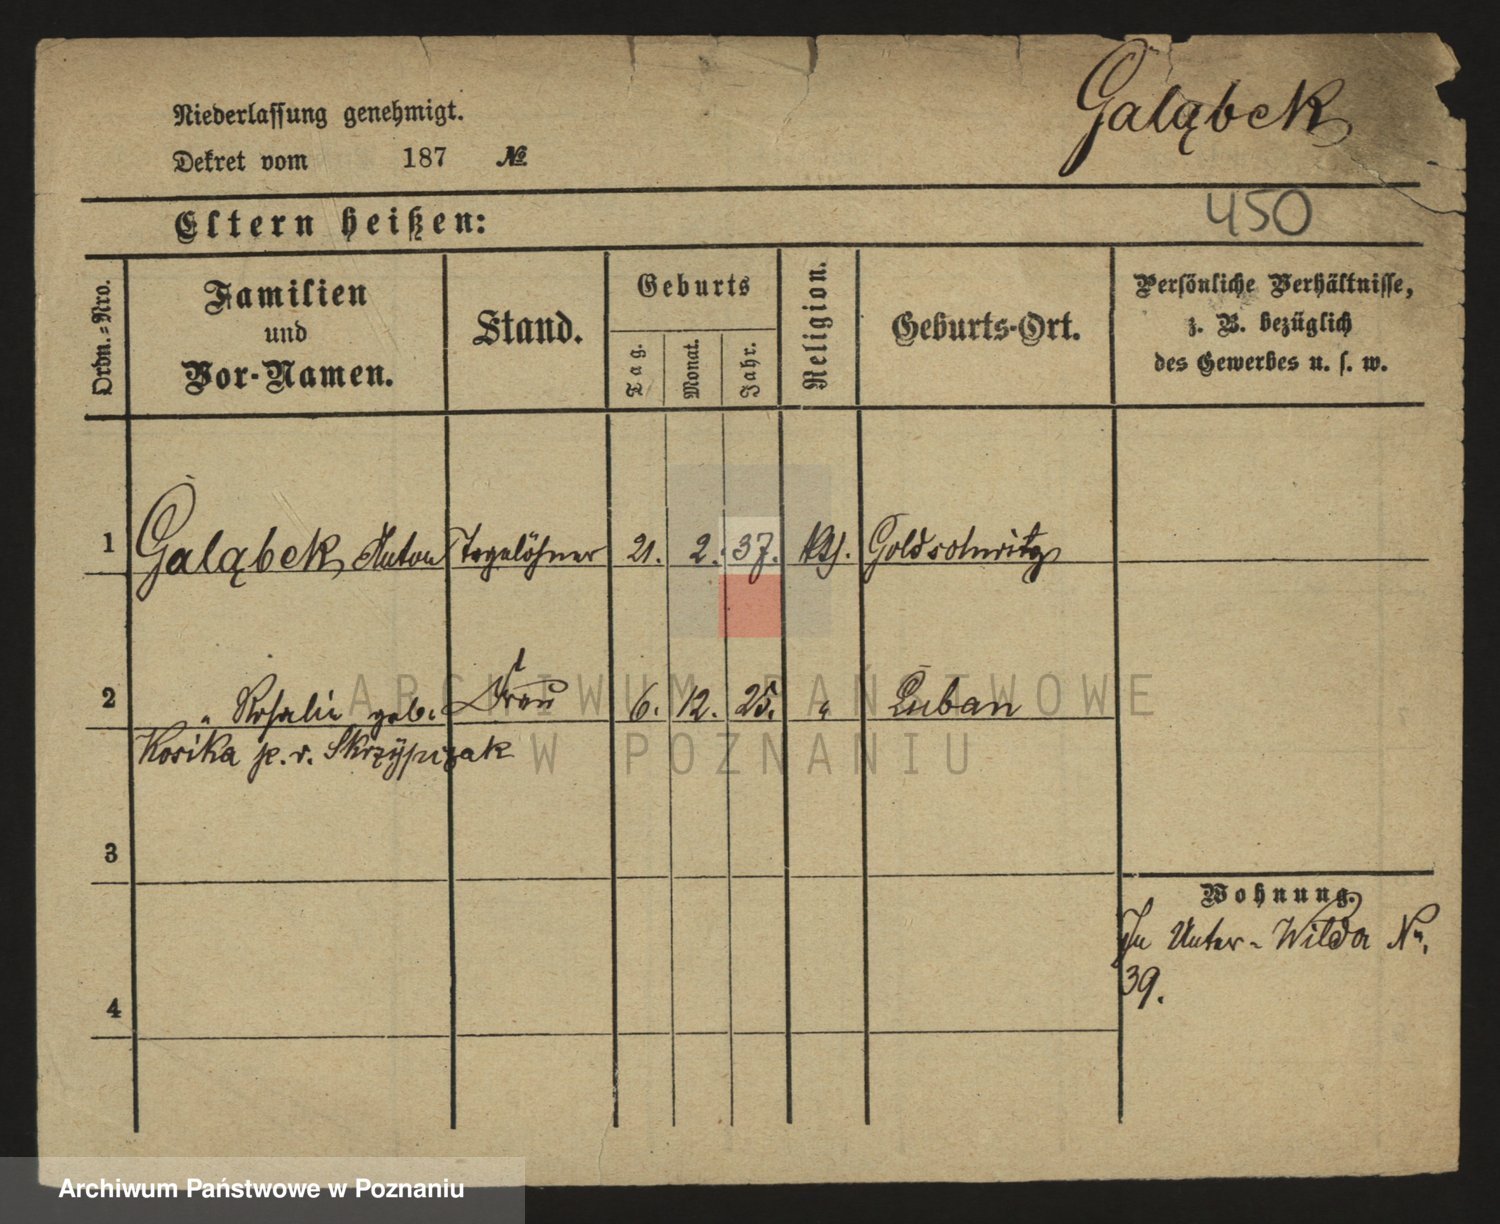 Galąbek
Niederlassung genehmigt.
Dekret vom 187 №
450
Eltern heißen:
Ordn.-Nro.
Familien
und
Vor-Namen.
Stand.
Geburts
Tag.
Monat.
Jahr.
Religion.
Geburts-Ort.
Persönliche Verhältnisse,
z. B. bezüglich
des Gewerbes u. s. w.
1 Galąbek Anton Tagelöhner 21. 2. 37. kth. Goldschwitz
2 " Rosalie geb. Frau 6. 12. 25. " Luban
Kosika p. v. Skrzypczak
3
Wohnung.
In Unter-Wilda No.
39.
4
ARCHIWUM PAŃSTWOWE
W POZNANIU
Archiwum Państwowe w Poznaniu